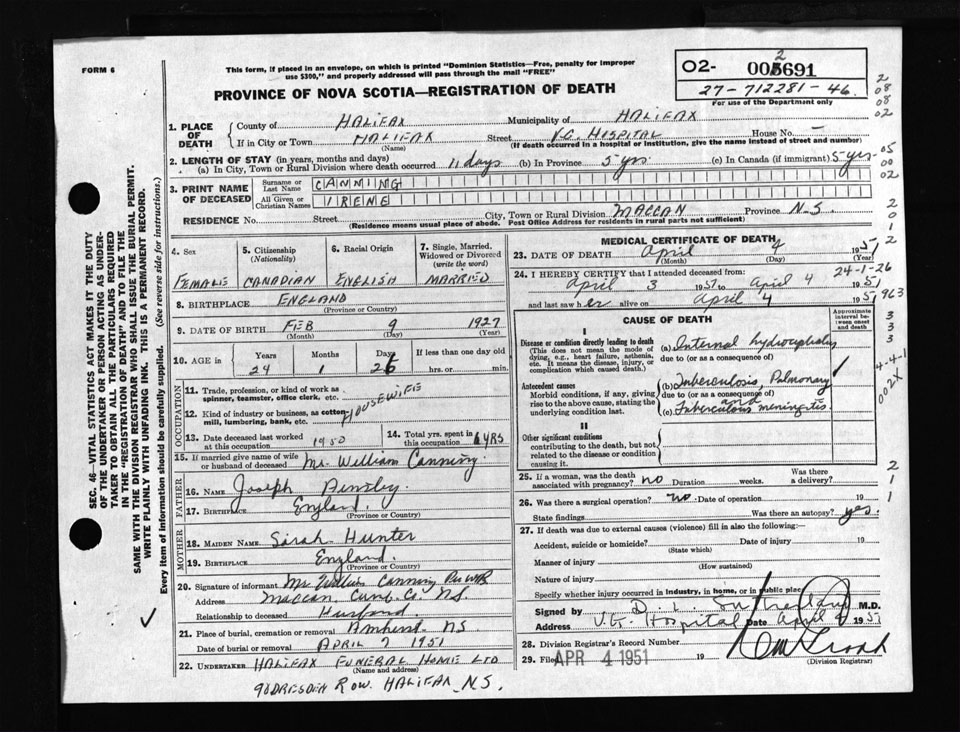 FORM 6
This form, if placed in an envelope, on which is printed "Dominion Statistics—Free, penalty for improper
use $300," and properly addressed will pass through the mail "FREE"
PROVINCE OF NOVA SCOTIA—REGISTRATION OF DEATH
02- 002691
27-712281-46
For use of the Department only
1. PLACE OF DEATH
County of HALIFAX Municipality of HALIFAX
If in City or Town HALIFAX Street V.G. HOSPITAL House No. —
(Name) (If death occurred in a hospital or institution, give the name instead of street and number)
2. LENGTH OF STAY (in years, months and days)
(a) In City, Town or Rural Division where death occurred 11 days (b) In Province 5 yrs (c) In Canada (if immigrant) 5 yrs
3. PRINT NAME OF DECEASED
Surname or Last Name CANNING
All Given or Christian Names IRENE
RESIDENCE No. Street City, Town or Rural Division MACCAN Province N.S.
(Residence means usual place of abode. Post Office Address for residents in rural parts not sufficient)
4. Sex FEMALE
5. Citizenship (Nationality) CANADIAN
6. Racial Origin ENGLISH
7. Single, Married, Widowed or Divorced (write the word) MARRIED
8. BIRTHPLACE ENGLAND
(Province or Country)
9. DATE OF BIRTH FEB 9 1927
(Month) (Day) (Year)
10. AGE in Years Months Days If less than one day old
24 1 26 hrs. or min.
OCCUPATION
11. Trade, profession, or kind of work as spinner, teamster, office clerk, etc.
HOUSEWIFE
12. Kind of industry or business, as cotton mill, lumbering, bank, etc.
13. Date deceased last worked at this occupation 1950
14. Total yrs. spent in this occupation 6 YRS
15. If married give name of wife or husband of deceased Mr. William Canning.
FATHER
16. NAME Joseph
17. BIRTHPLACE England.
(Province or Country)
MOTHER
18. MAIDEN NAME Sarah Hunter
19. BIRTHPLACE England.
(Province or Country)
20. Signature of informant Mr. William Canning Per WR
Address Maccan, Cumb. Co. N.S.
Relationship to deceased Husband.
21. Place of burial, cremation or removal Amherst. N.S.
Date of burial or removal APRIL 7 1951
22. UNDERTAKER HALIFAX FUNERAL HOME LTD
(Name and address)
90 DRESDEN ROW. HALIFAX N.S.
MEDICAL CERTIFICATE OF DEATH
23. DATE OF DEATH April 4 1951
(Month) (Day) (Year)
24. I HEREBY CERTIFY that I attended deceased from: 24-1-26
April 3 1951 to April 4 1951
and last saw her alive on April 4 1951
CAUSE OF DEATH
Approximate interval between onset and death
I
Disease or condition directly leading to death
(This does not mean the mode of dying, e.g., heart failure, asthenia, etc. It means the disease, injury, or complication which caused death.)
(a) Internal hydrocephalus
due to (or as a consequence of)
Antecedent causes
Morbid conditions, if any, giving rise to the above cause, stating the underlying condition last.
(b) Tuberculosis, Pulmonary
due to (or as a consequence of)
and
(c) Tuberculous meningitis.
II
Other significant conditions
contributing to the death, but not related to the disease or condition causing it.
25. If a woman, was the death associated with pregnancy? no Duration weeks. Was there a delivery?
26. Was there a surgical operation? no. Date of operation 19
State findings Was there an autopsy? yes.
27. If death was due to external causes (violence) fill in also the following:—
Accident, suicide or homicide? Date of injury 19
(State which)
Manner of injury
(How sustained)
Nature of injury
Specify whether injury occurred in industry, in home, or in public place
Signed by D. L. Sutherland M.D.
Address V.G. Hospital Date April 4 1951
28. Division Registrar's Record Number
29. Filed APR 4 1951
(Division Registrar)
SEC. 46—VITAL STATISTICS ACT MAKES IT THE DUTY
OF THE UNDERTAKER OR PERSON ACTING AS UNDER-
TAKER TO OBTAIN ALL THE PARTICULARS REQUIRED
IN THE "REGISTRATION OF DEATH" AND TO FILE THE
SAME WITH THE DIVISION REGISTRAR WHO SHALL ISSUE THE BURIAL PERMIT.
WRITE PLAINLY WITH UNFADING INK. THIS IS A PERMANENT RECORD.
Every item of information should be carefully supplied. (See reverse side for instructions.)
2
08
08
02
05
00
02
2
0
1
2
963
3
3
3
4-4-1
002X
2
1
1